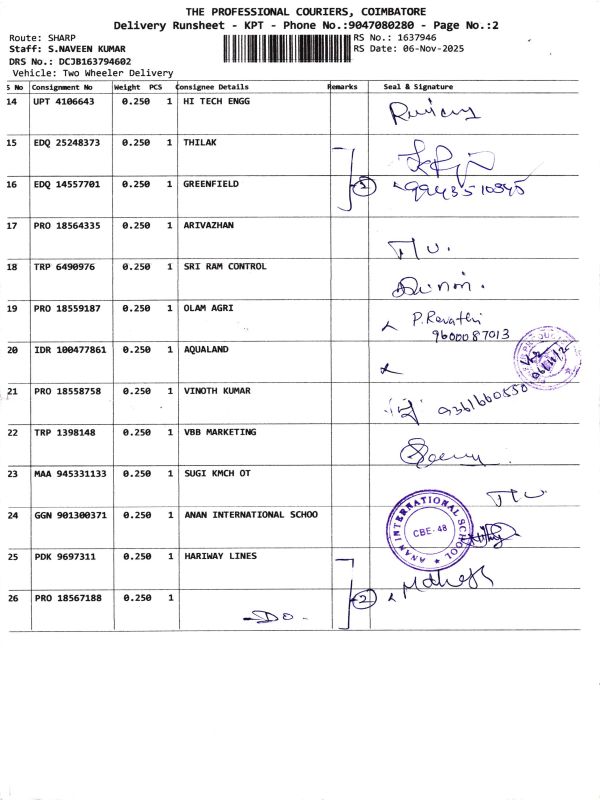 THE PROFESSIONAL COURIERS, COIMBATORE
Delivery Runsheet - KPT - Phone No.:9047080280 - Page No.:2
Route: SHARP RS No.: 1637946
Staff: S.NAVEEN KUMAR RS Date: 06-Nov-2025
DRS No.: DCJB163794602
Vehicle: Two Wheeler Delivery
S No Consignment No Weight PCS Consignee Details Remarks Seal & Signature
14 UPT 4106643 0.250 1 HI TECH ENGG
15 EDQ 25248373 0.250 1 THILAK
16 EDQ 14557701 0.250 1 GREENFIELD 9943510345
17 PRO 18564335 0.250 1 ARIVAZHAN
18 TRP 6490976 0.250 1 SRI RAM CONTROL
19 PRO 18559187 0.250 1 OLAM AGRI P.Revathi
9600087013
20 IDR 100477861 0.250 1 AQUALAND
21 PRO 18558758 0.250 1 VINOTH KUMAR 9361660550
22 TRP 1398148 0.250 1 VBB MARKETING
23 MAA 945331133 0.250 1 SUGI KMCH OT
24 GGN 901300371 0.250 1 ANAN INTERNATIONAL SCHOO
ANAN INTERNATIONAL SCHOOL
CBE-48
25 PDK 9697311 0.250 1 HARIWAY LINES
26 PRO 18567188 0.250 1 -Do- 2